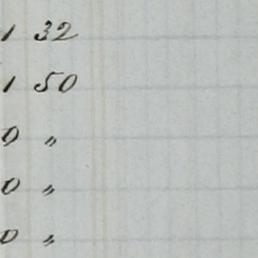 1 32
1 50
0 "
0 "
0 "